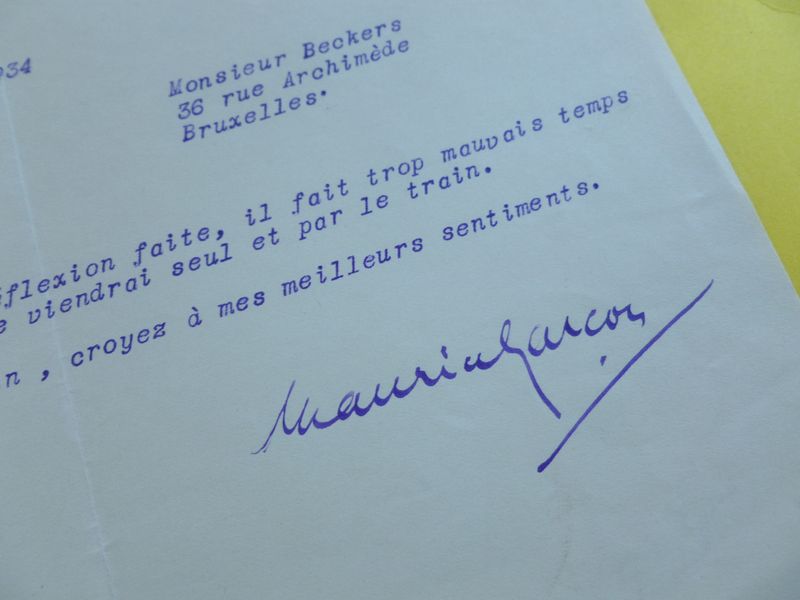 934
Monsieur Beckers
36 rue Archimède
Bruxelles.
éflexion faite, il fait trop mauvais temps
e viendrai seul et par le train.
n , croyez à mes meilleurs sentiments.
Maurice Garçon